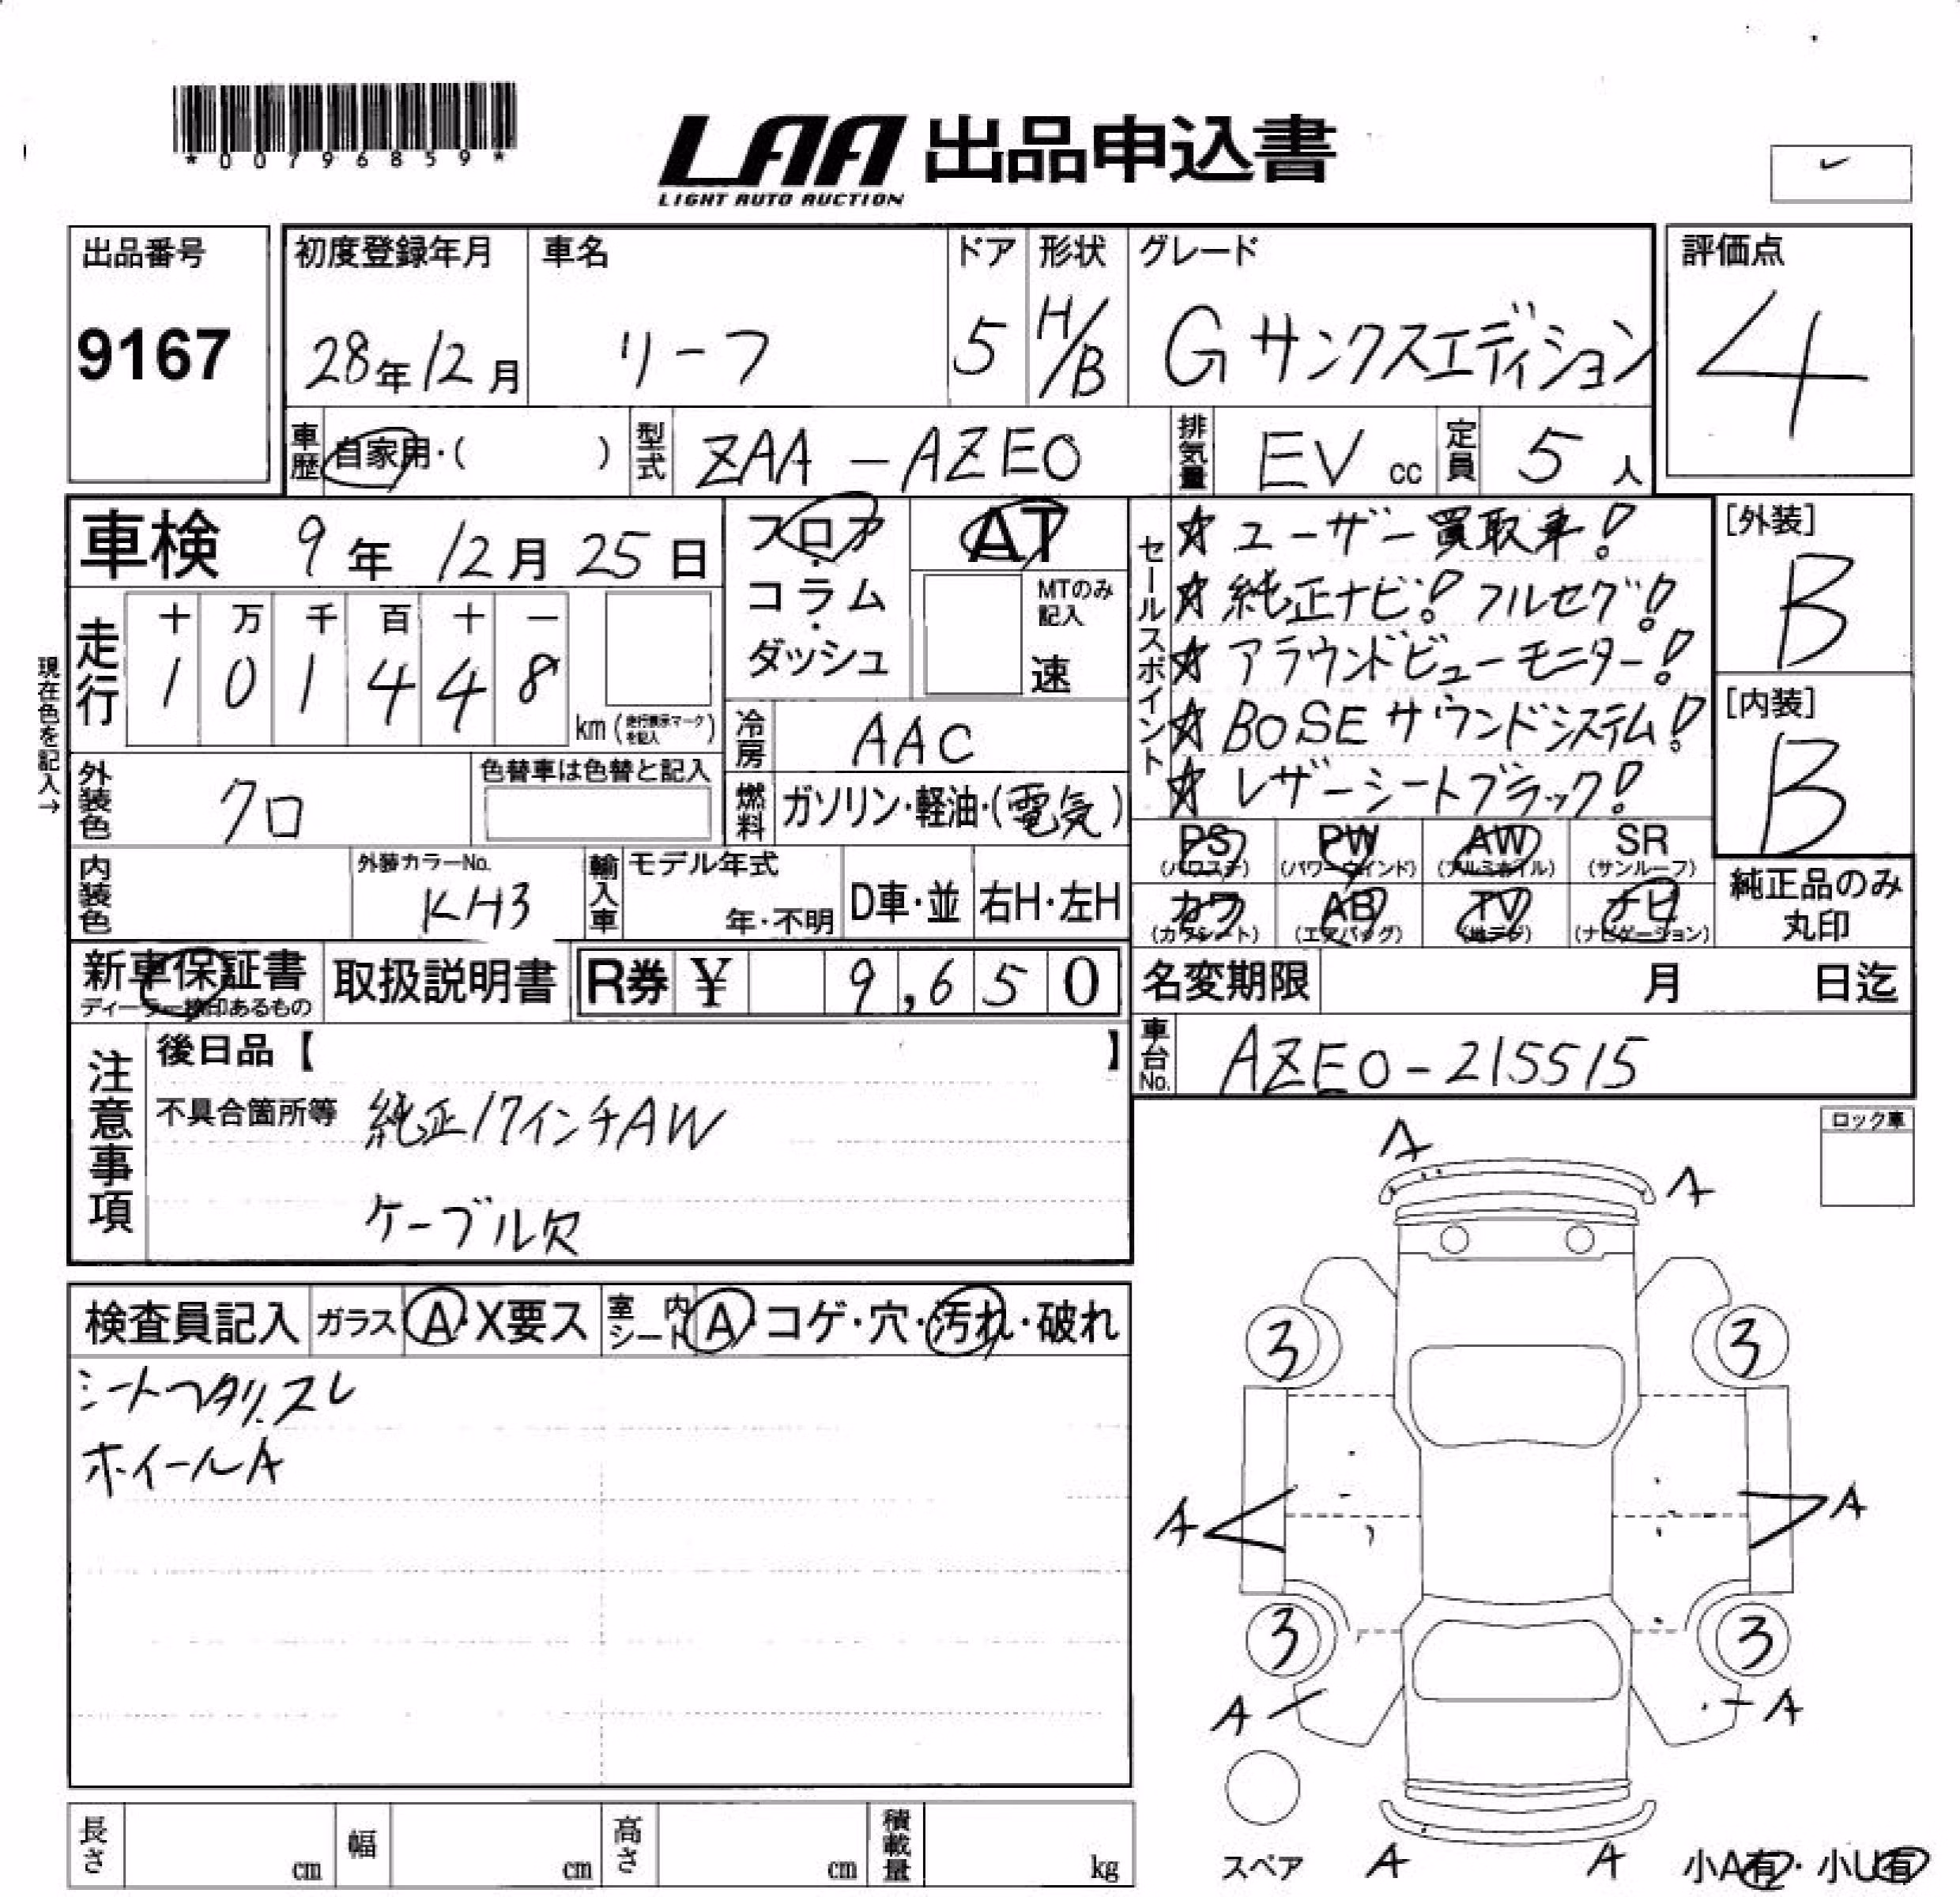 *00796859*
LAA 出品申込書
LIGHT AUTO AUCTION
出品番号
9167
初度登録年月
28年12月
車名
リーフ
ドア
5
形状
H/B
グレード
G サンクスエディション
評価点
4
車歴 自家用・( )
型式 ZAA-AZE0
排気量 EV cc
定員 5人
車検 9年 12月 25日
フロア・コラム・ダッシュ
AT
MTのみ記入
速
セールスポイント
☆ ユーザー買取車!
☆ 純正ナビ! フルセグ!
☆ アラウンドビューモニター!
☆ BOSEサウンドシステム!
☆ レザーシートブラック!
[外装]
B
[内装]
B
現在色を記入→
走行
十 万 千 百 十 一
1 0 1 4 4 8
km (走行表示マークを記入)
冷房 AAC
燃料 ガソリン・軽油・(電気)
外装色 クロ
色替車は色替と記入
内装色
外装カラーNo.
KH3
輸入車
モデル年式
年・不明
D車・並
右H・左H
PS (パワステ)
PW (パワーウインド)
AW (アルミホイル)
SR (サンルーフ)
カワ (カワシート)
AB (エアバッグ)
TV (地デジ)
ナビ (ナビゲーション)
純正品のみ丸印
新車保証書
ディーラー捺印あるもの
取扱説明書
R券 ¥ 9,650
名変期限 月 日迄
車台No. AZE0-215515
注意事項
後日品【 】
不具合箇所等 純正17インチAW
ケーブル欠
ロック車
検査員記入
ガラス A・X要ス
室内シート A・コゲ・穴・汚れ・破れ
シートヘタリ、スレ
ホイールA
A
A
3
3
A
A
3
3
A
A
スペア
A
A
小A有・小U有
長さ cm
幅 cm
高さ cm
積載量 kg